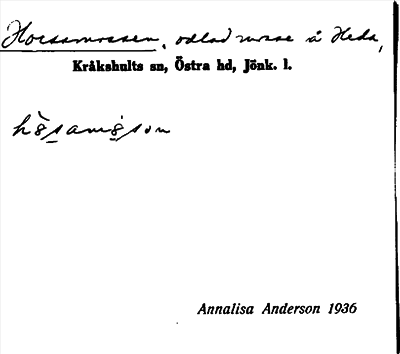 Horsamossen, odlad mosse å Heda,
Kråkshults sn, Östra hd, Jönk. l.
Annalisa Anderson 1936